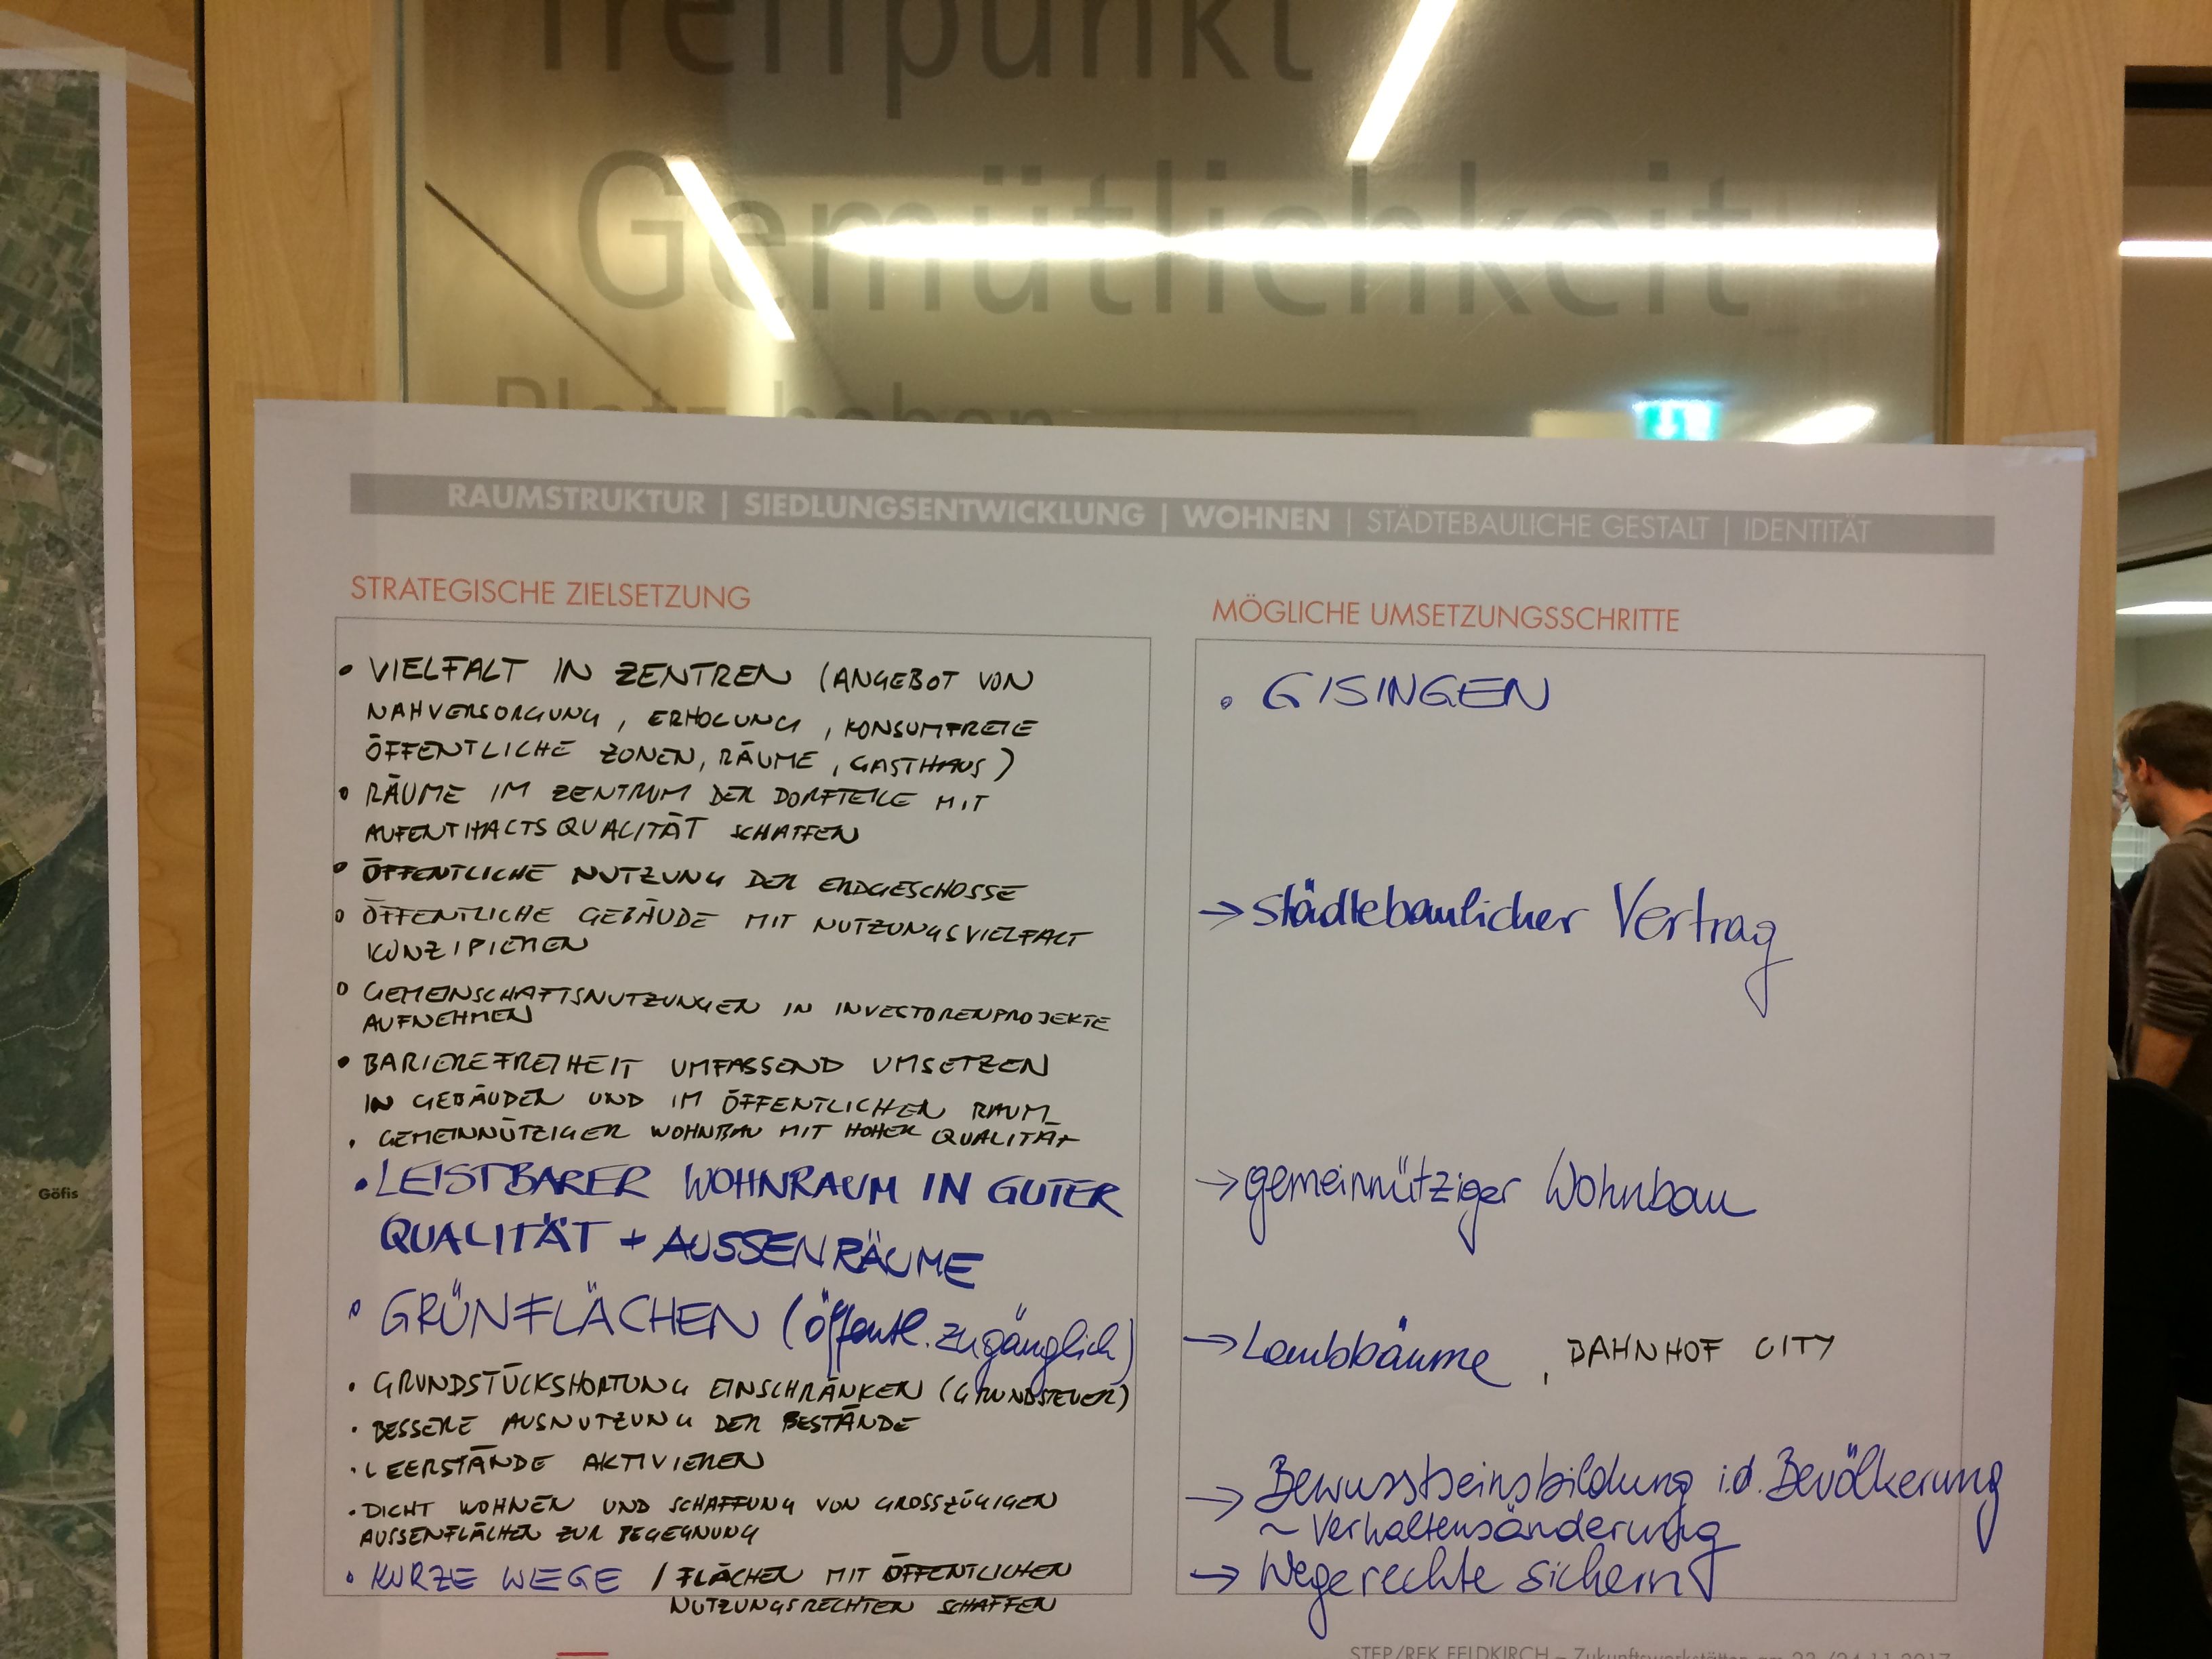 Treffpunkt
Gemütlichkeit
Platz haben
Göfis
RAUMSTRUKTUR | SIEDLUNGSENTWICKLUNG | WOHNEN | STÄDTEBAULICHE GESTALT | IDENTITÄT
STRATEGISCHE ZIELSETZUNG
• VIELFALT IN ZENTREN (ANGEBOT VON
NAHVERSORGUNG, ERHOLUNG, KONSUMFREIE
ÖFFENTLICHE ZONEN, RÄUME, GASTHAUS)
• RÄUME IM ZENTRUM DER DORFTEILE MIT
AUFENTHALTSQUALITÄT SCHAFFEN
• ÖFFENTLICHE NUTZUNG DER ERDGESCHOSSE
• ÖFFENTLICHE GEBÄUDE MIT NUTZUNGSVIELFALT
KONZIPIEREN
• GEMEINSCHAFTSNUTZUNGEN IN INVESTORENPROJEKTE
AUFNEHMEN
• BARIEREFREIHEIT UMFASSEND UMSETZEN
IN GEBÄUDEN UND IM ÖFFENTLICHEN RAUM
• GEMEINNÜTZIGER WOHNBAU MIT HOHER QUALITÄT
• LEISTBARER WOHNRAUM IN GUTER
QUALITÄT + AUSSENRÄUME
• GRÜNFLÄCHEN (öffentl. zugänglich)
• GRUNDSTÜCKSHORTUNG EINSCHRÄNKEN (GRUNDSTEUER)
• BESSERE AUSNUTZUNG DER BESTÄNDE
• LEERSTÄNDE AKTIVIEREN
• DICHT WOHNEN UND SCHAFFUNG VON GROSSZÜGIGEN
AUSSENFLÄCHEN ZUR BEGEGNUNG
• KURZE WEGE / FLÄCHEN MIT ÖFFENTLICHEN
NUTZUNGSRECHTEN SCHAFFEN
MÖGLICHE UMSETZUNGSSCHRITTE
• GISINGEN
→ städtebaulicher Vertrag
→ gemeinnütziger Wohnbau
→ Laubbäume, BAHNHOF CITY
→ Bewusstseinsbildung i.d. Bevölkerung
~ Verhaltensänderung
→ Wegerechte sichern
STEP/REK FELDKIRCH – Zukunftswerkstätten am 23./24.11.2017